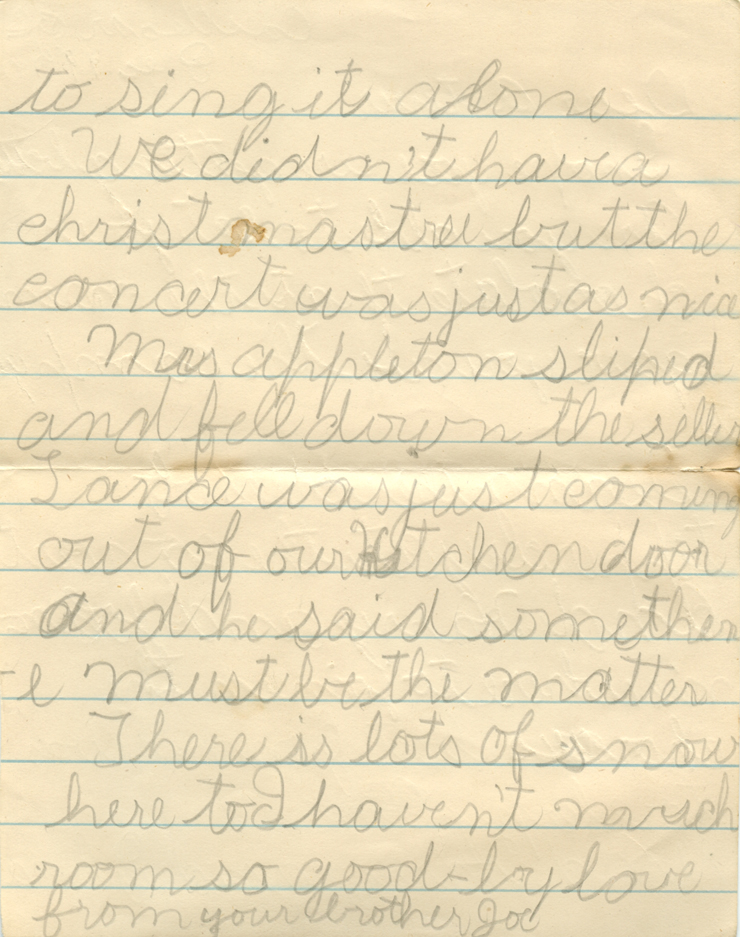 to sing it alone
We didn't have a
christmas tree but the
concert was just as nice
Mrs appleton sliped
and fell down the seller
Lance was just coming
out of our Kitchen door
and he said somethen
-e must be the matter
There is lots of snow
here to I haven't much
room so good-by love
from your brother Joe